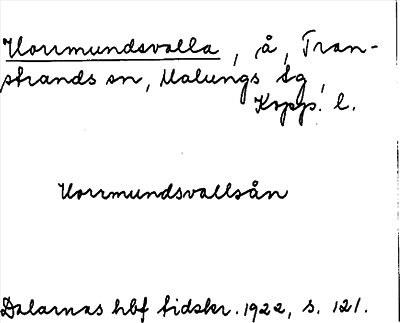 Horrmundsvalla, å, Tran-
strands sn, Malungs tg,
Kopp. l.
Horrmundsvallsån
Dalarnas hbf tidskr. 1922, s. 121.